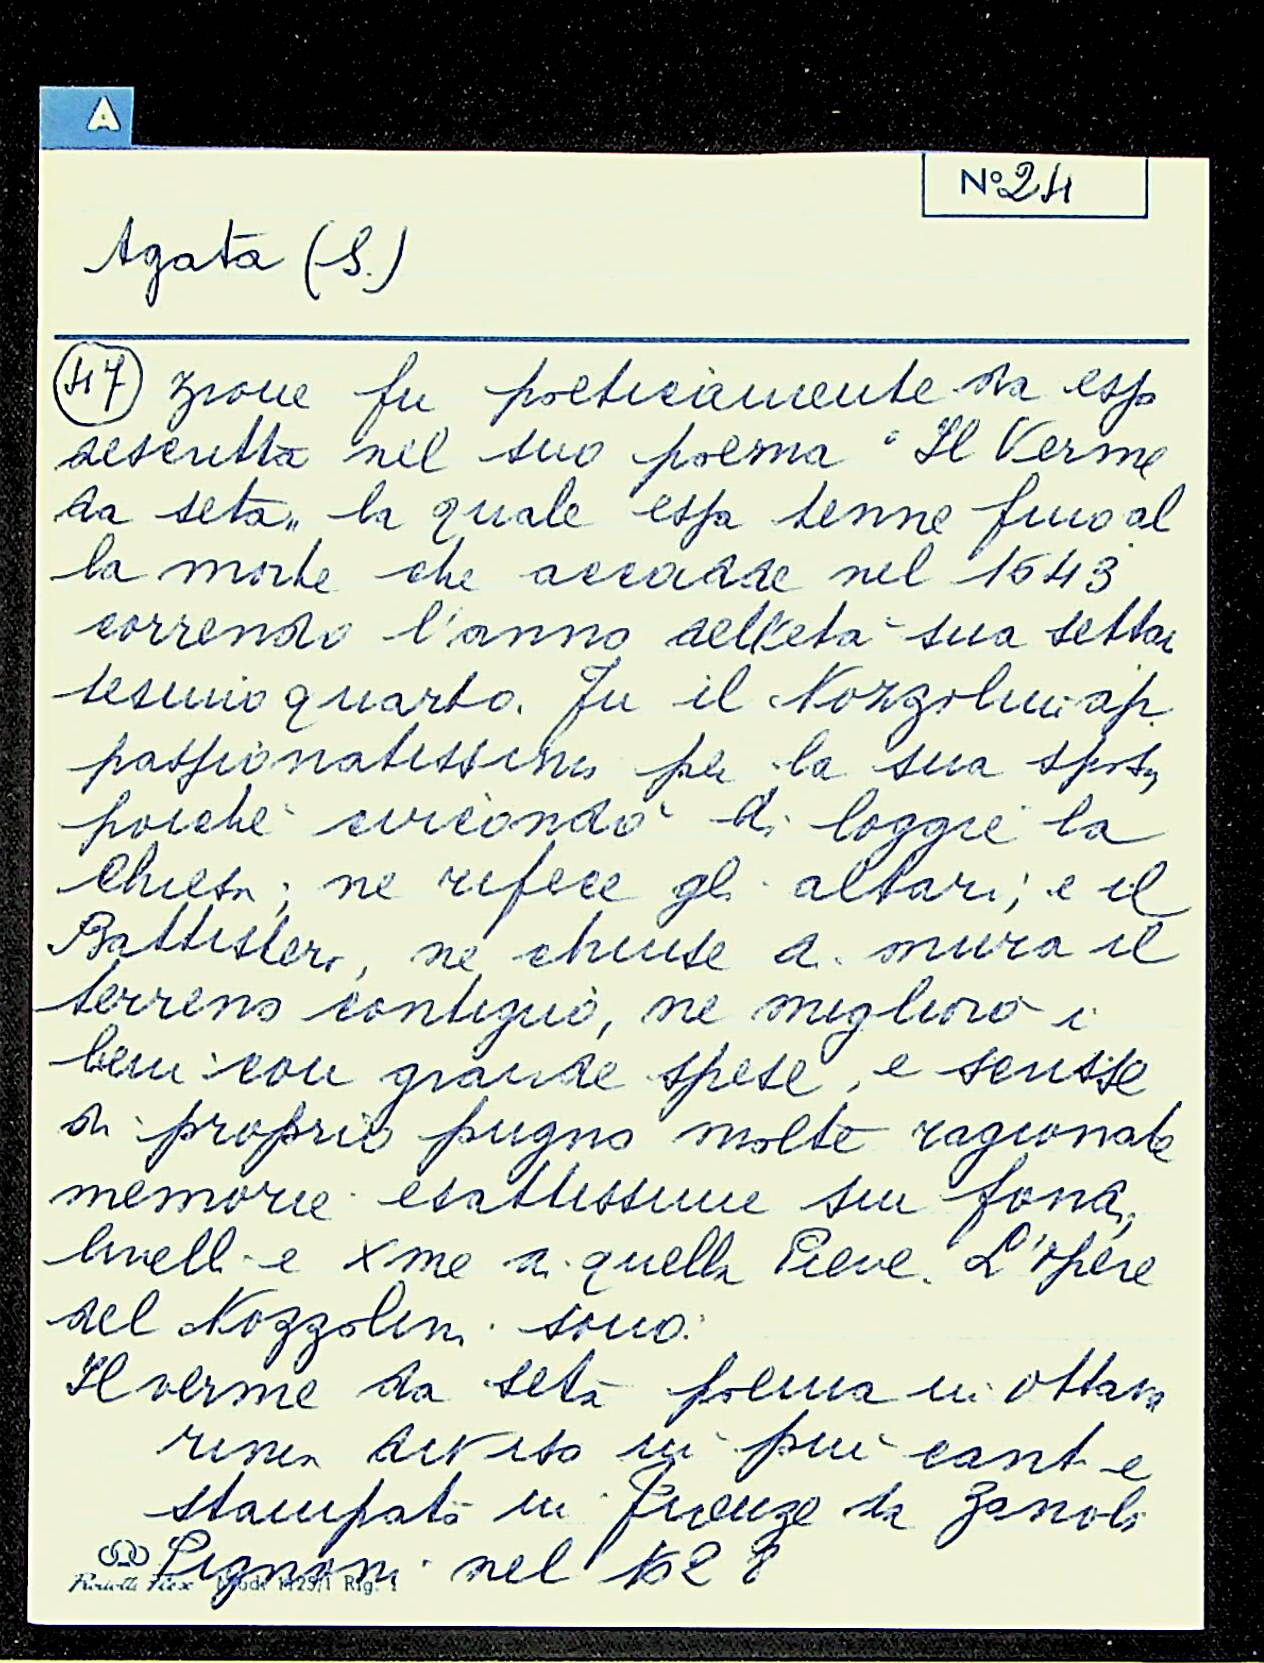 A
N° 24
Agata (S.)
47 zione fu poeticamente da essa
descritta nel suo poema "Il Verme
da seta" la quale essa tenne fino al
la morte che accadde nel 1643
correndo l'anno dell'età sua settan
tesimo quarto. Fu il Nozzolini ap
passionatissimo per la sua sposa,
poiché circondò di loggie la
Chiesa; ne rifece gli altari; e il
Battistero, ne chiuse di mura il
terreno contiguo, ne migliorò i
beni con grande spese, e scrisse
di proprio pugno molte ragionate
memorie esattissime sui fondi,
livelli e xme di quella Pieve. L'opere
del Nozzolini sono:
Il verme da seta poema in ottava
rima diviso in più canti e
stampato in Firenze da Zanobi
Pignoni nel 1628